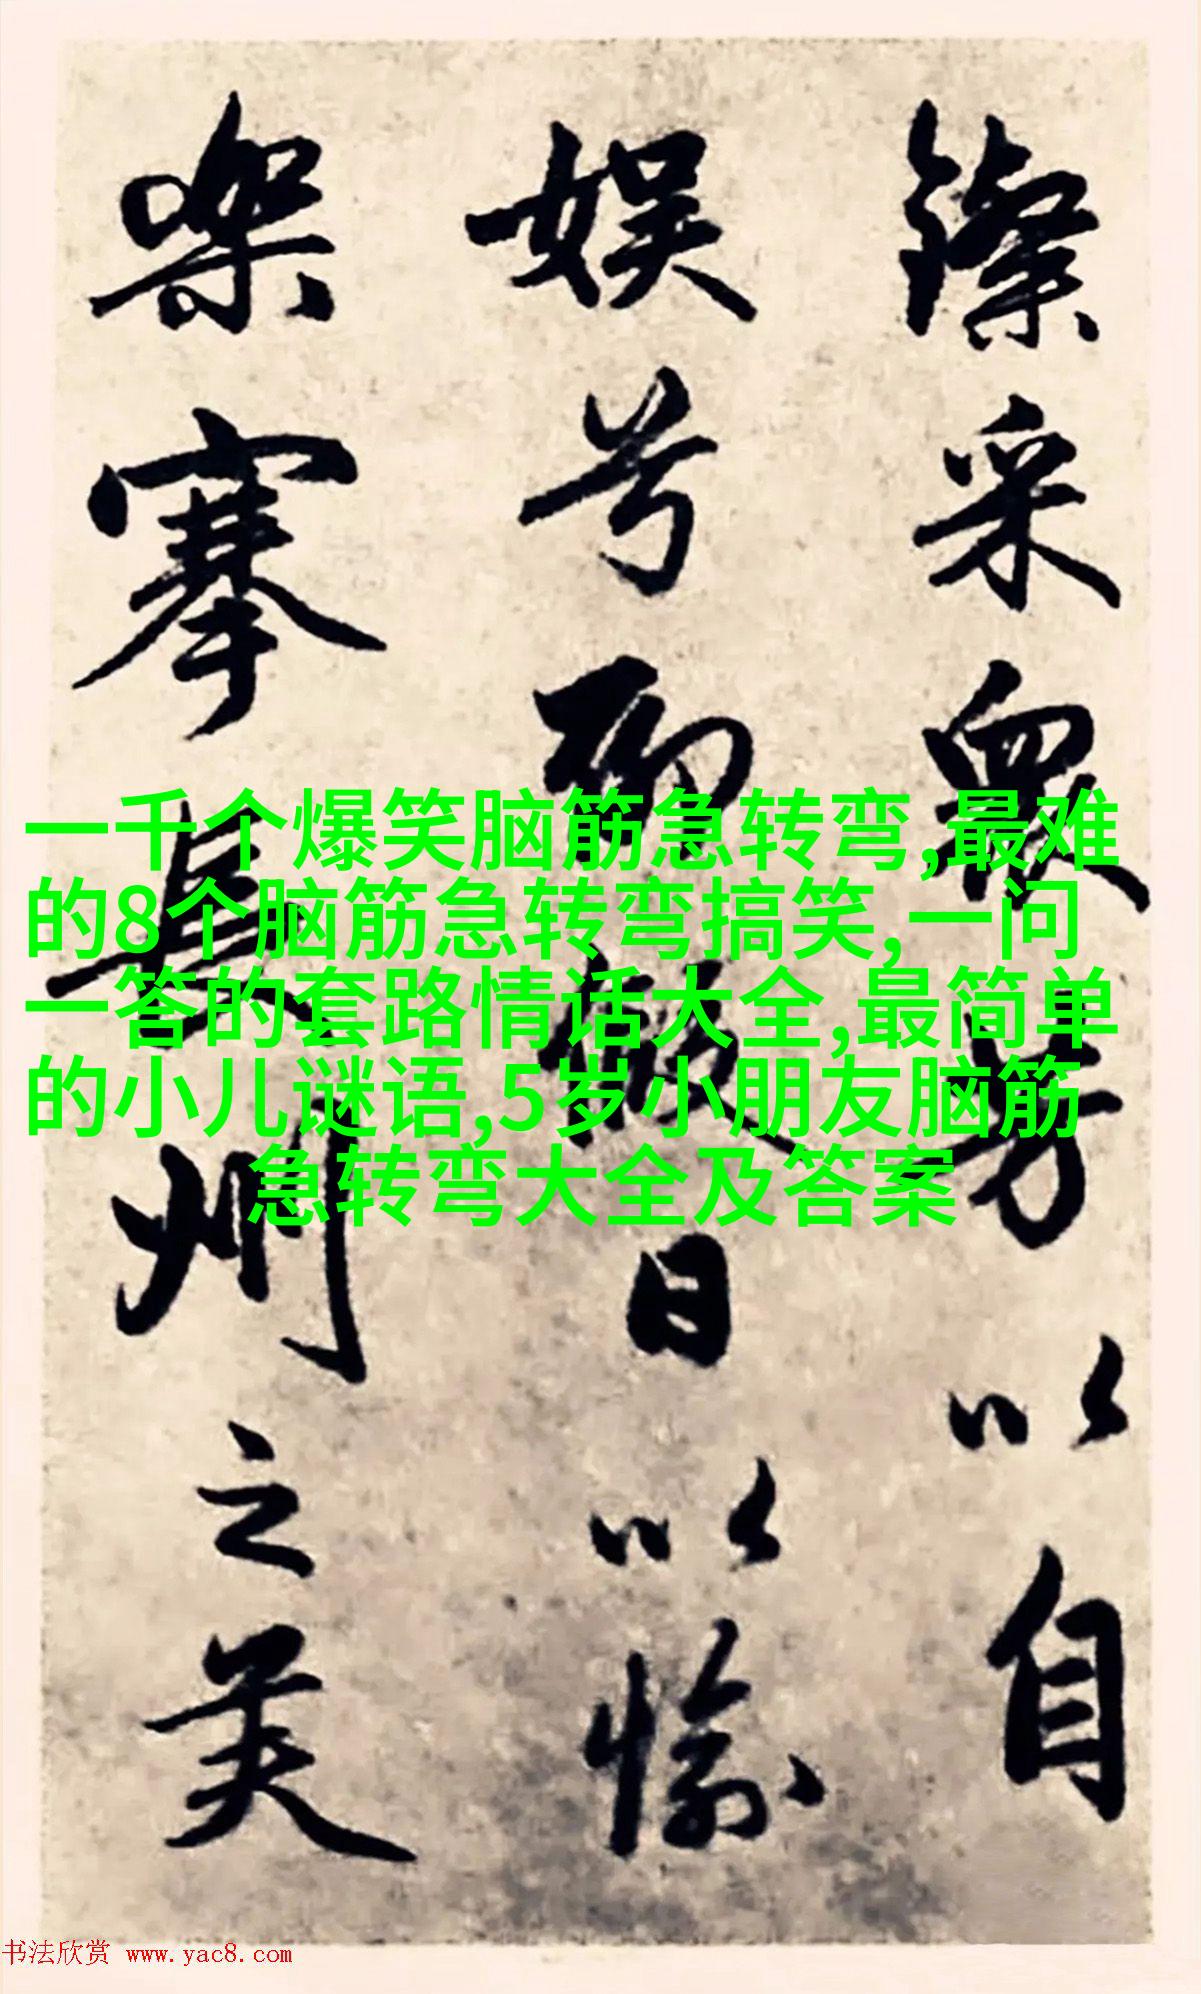 采眾芳以自
娱兮聊日以愉
樂搴長州之芙
一千个爆笑脑筋急转弯,最难
的8个脑筋急转弯搞笑,一问
一答的套路情话大全,最简单
的小儿谜语,5岁小朋友脑筋
急转弯大全及答案
书法欣赏 www.yac8.com